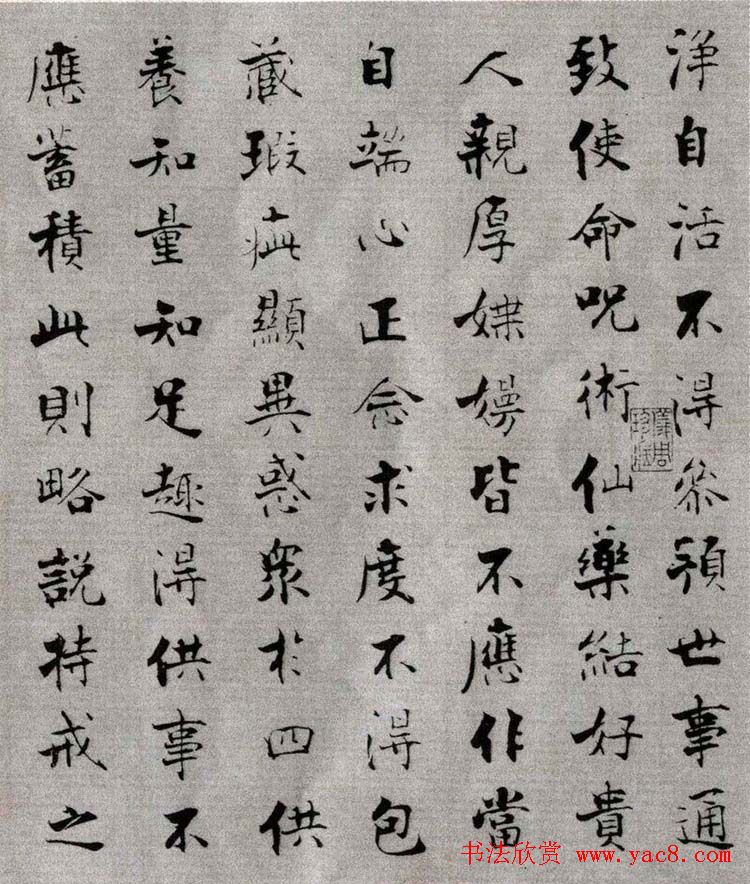 淨自活不得叅預世事通
致使命呪術仙藥結好貴
人親厚媟嫚皆不應作當
自端心正念求度不得包
藏瑕疵顯異惑衆於四供
養知量知足趣得供事不
應蓄積此則略説持戒之
书法欣赏 www.yac8.com